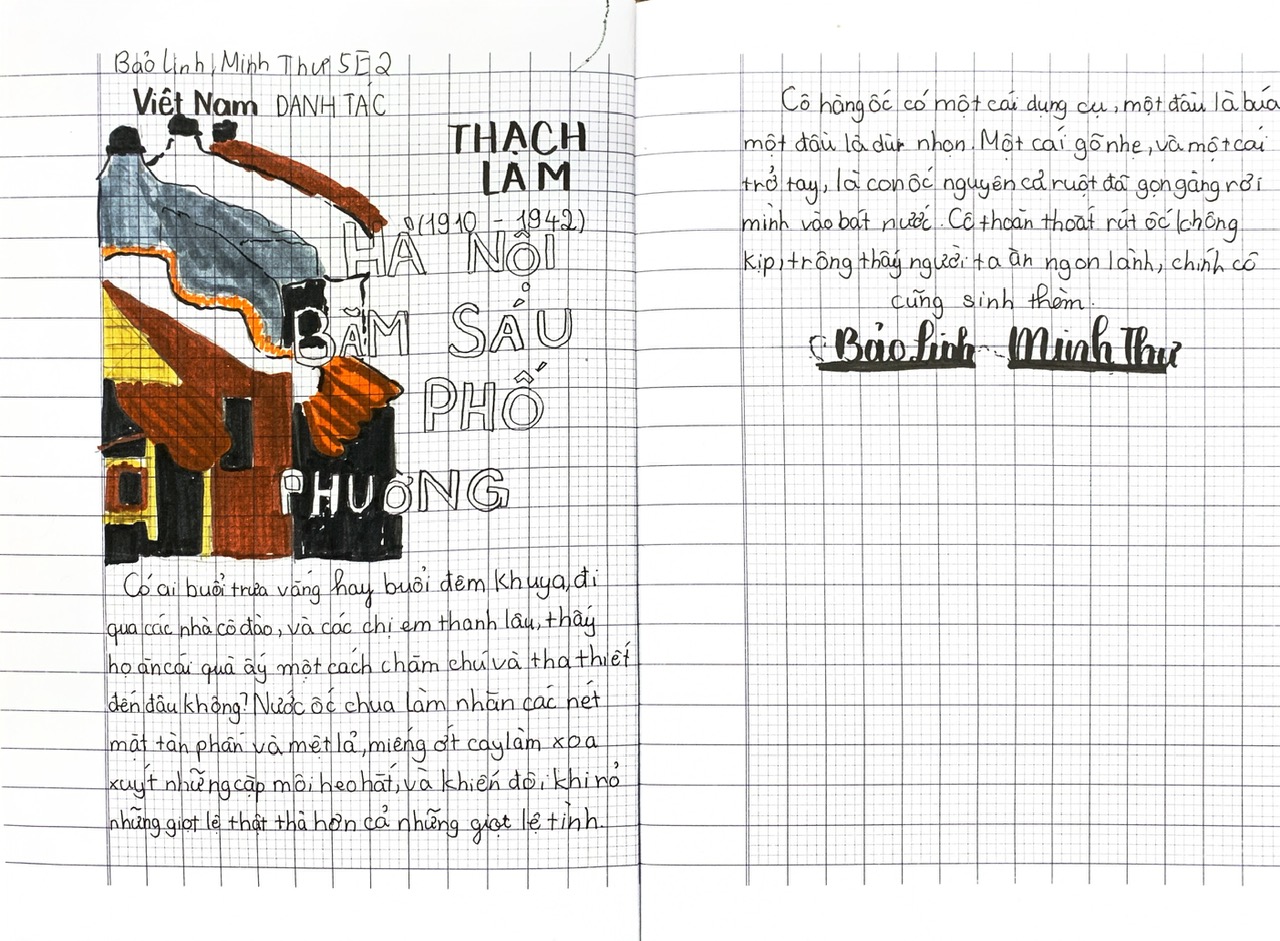 Bảo Linh, Minh Thư 5E2
Việt Nam DANH TÁC
THẠCH
LAM
(1910 - 1942)
HÀ NỘI
BĂM SÁU
PHỐ
PHƯỜNG
Có ai buổi trưa vắng hay buổi đêm khuya, đi
qua các nhà cô đào, và các chị em thanh lâu, thấy
họ ăn cái quà ấy một cách chăm chú và tha thiết
đến đâu không? Nước ốc chua làm nhăn các nét
mặt tàn phấn và mệt lả, miếng ớt cay làm xoa
xuýt những cặp môi heo hắt, và khiến đôi khi nỏ
những giọt lệ thật thà hơn cả những giọt lệ tình.
Cô hàng ốc có một cái dụng cụ, một đầu là búa
một đầu là dùi nhọn. Một cái gõ nhẹ, và một cái
trở tay, là con ốc nguyên cả ruột đã gọn gàng rơi
mình vào bát nước. Cô thoăn thoắt rút ốc không
kịp, trông thấy người ta ăn ngon lành, chính cô
cũng sinh thèm.
Bảo Linh - Minh Thư